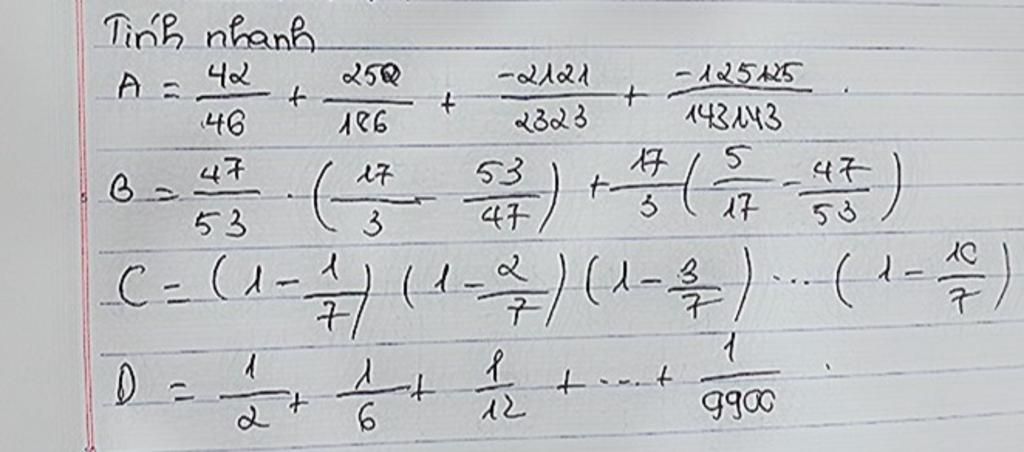 Tính nhanh
A = 42/46 + 250/186 + -2121/2323 + -125125/143143 .
B = 47/53 . (17/3 - 53/47) + 17/3 (5/17 - 47/53)
C = (1 - 1/7) (1 - 2/7) (1 - 3/7) ... (1 - 10/7)
D = 1/2 + 1/6 + 1/12 + ... + 1/9900 .